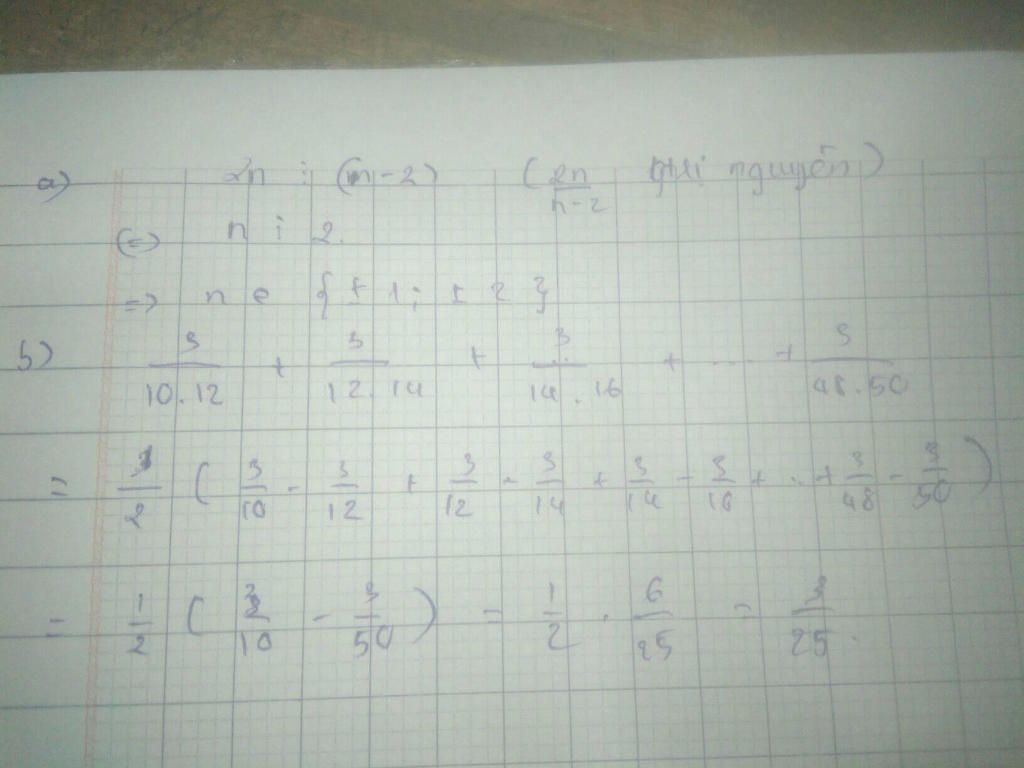 a) 2n ⋮ (n-2) (2n/n-2 nguyên)
(=> n ⋮ 2.
=> n e {±1; ±2}
b) 3/10.12 + 3/12.14 + 3/14.16 + ... + 3/48.50
= /2 (3/10 - 3/12 + 3/12 - 3/14 + 3/14 - 3/16 + ... + 3/48 - 3/50)
= 1/2 (3/10 - 3/50) = 1/2 . 6/25 = 3/25.